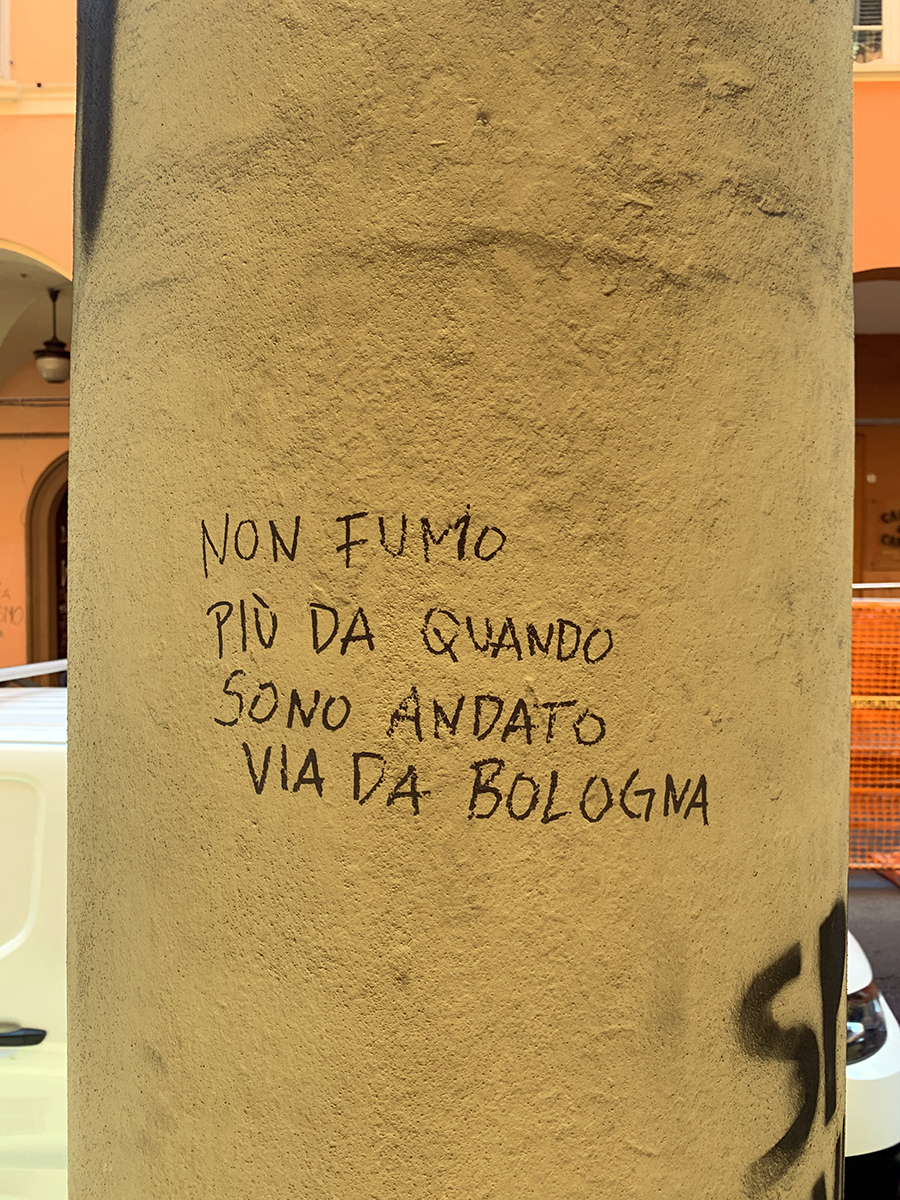 NON FUMO
PIÙ DA QUANDO
SONO ANDATO
VIA DA BOLOGNA